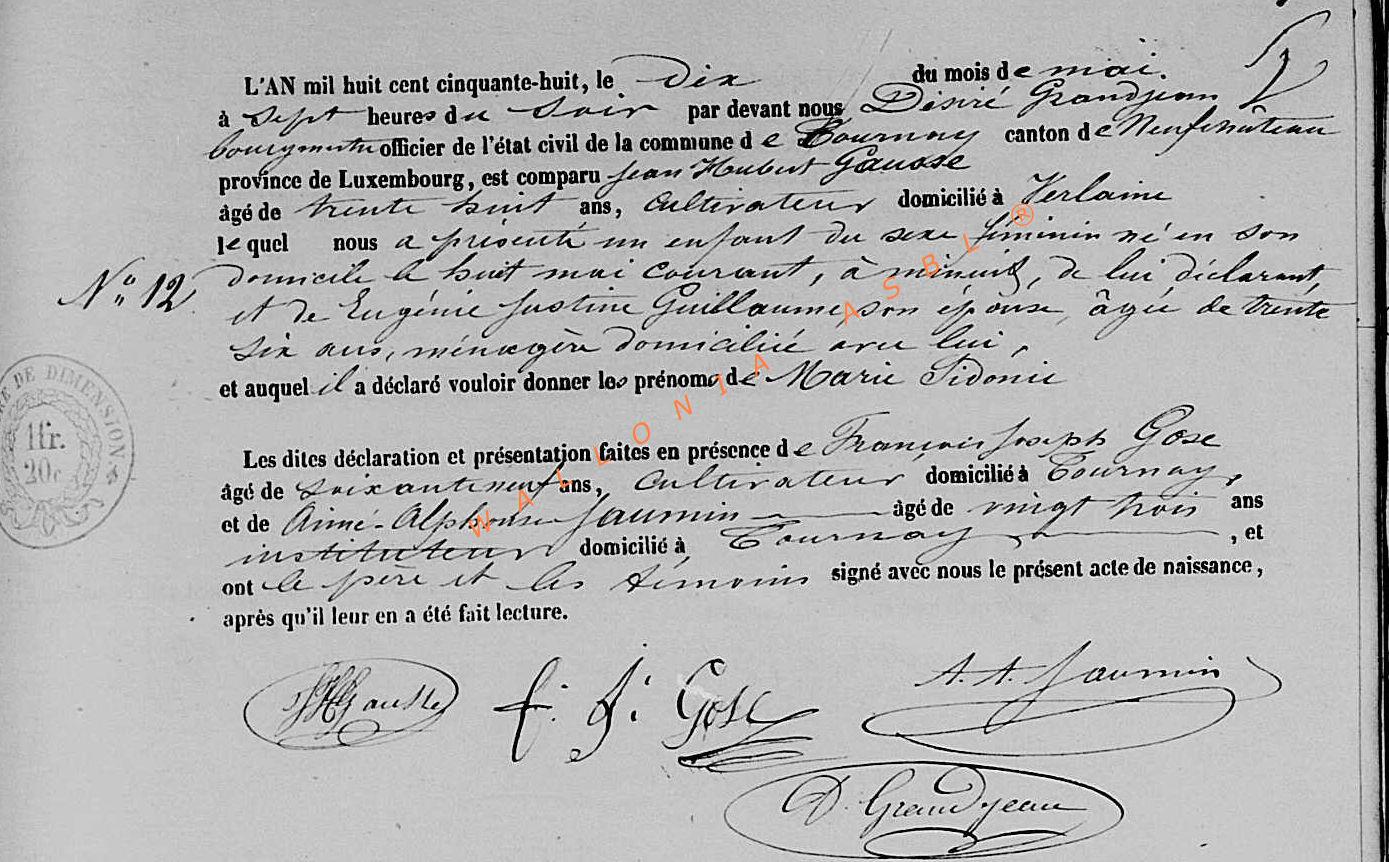 L'AN mil huit cent cinquante-huit, le Dix du mois de mai.
à sept heures du soir par devant nous Désiré Grandjean
bourgmestre officier de l'état civil de la commune de Tournay canton de Neufchâteau
province de Luxembourg, est comparu Jean Hubert Gausse
âgé de trente huit ans, cultivateur domicilié à Verlaine
lequel nous a présenté un enfant du sexe féminin né en son
No 12 domicile le huit mai courant, à minuit, de lui déclarant,
et de Eugénie Justine Guillaume, son épouse, âgée de trente
six ans, ménagère domiciliée avec lui,
et auquel il a déclaré vouloir donner les prénoms de Marie Sidonie
DE DIMENSION
1fr.
20c
Les dites déclaration et présentation faites en présence de François Joseph Gose
âgé de soixante neuf ans, cultivateur domicilié à Tournay,
et de Aimé-Alphonse Jaumin âgé de vingt trois ans
instituteur domicilié à Tournay, et
ont le père et les témoins signé avec nous le présent acte de naissance,
après qu'il leur en a été fait lecture.
JHGausse F. J. Gose A. A. Jaumin
D. Grandjean
WALLONIA ASBL ®